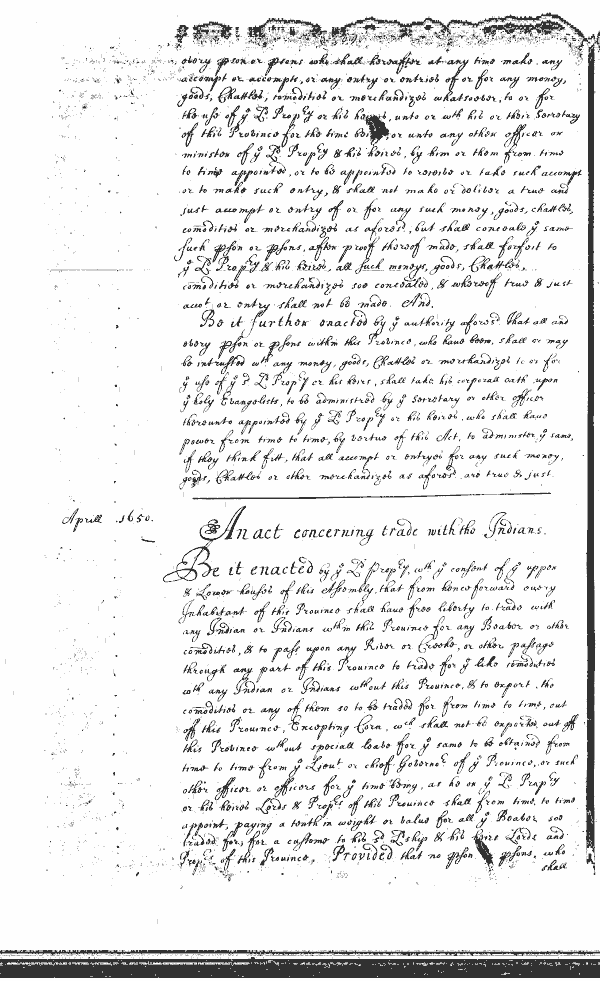 every pson or psons who shall hereafter at any time make any
accompt or accompts, or any entry or entries of or for any money,
goods, Chattles, comodities or merchandizes whatsoever, to or for
the use of ye Ld Propry or his heires, unto or wth his or their Secretary
of this Province for the time being, or unto any other officer or
minister of ye Ld Propry & his heires, by him or them from time
to time appointed, or to be appointed to receive or take such accompt
or to make such entry, & shall not make or deliver a true and
just accompt or entry of or for any such money, goods, chattles,
comodities or merchandizes as aforesd, but shall conceale ye same
such pson or psons, after proof thereof made, shall forfeit to
ye Ld Propry & his heires, all such moneys, goods, Chattles,
comodities or merchandizes soe concealed, & whereof true & just
acct or entry shall not be made. And.
Be it further enacted by ye authority aforesd that all and
every pson or psons within this Province, who have been, shall or may
be intrusted wth any money, goods, Chattles or merchandizes to or for
ye use of ye sd Ld Propry or his heirs, shall take his corporall oath upon
ye holy Evangelists, to be administred by ye Secretary or other officer
thereunto appointed by ye Ld Propry or his heires, who shall have
power from time to time, by vertue of this Act, to administer ye same,
if they think fitt, that all accompt or entryes for any such money,
goods, Chattles or other merchandizes as aforesd are true & just.
Aprill 1650.
An act concerning trade with the Indians.
Be it enacted by ye Ld Propry, wth ye consent of ye upper
& Lower houses of this Assembly, that from henceforward every
Inhabitant of this Province shall have free liberty to trade with
any Indian or Indians wthin this Province for any Beaver or other
comodities, & to pass upon any River or Creeke, or other passage
through any part of this Province to trade for ye like comodities
wth any Indian or Indians wthout this Province, & to export the
comodities or any of them so to be traded for from time to time, out
off this Province, Excepting Corn, wch shall not be exported out off
this Province wthout speciall leave for ye same to be obtained from
time to time from ye Lieut or chief Governor of ye Province, or such
other officer or officers for ye time being, as he or ye Ld Propry
or his heires Lords & Proprs of this Province shall from time to time
appoint, paying a tenth in weight or value for all ye Beaver soe
traded for, for a custome to his sd Ldship & his heirs Lords and
Proprs of this Province, Provided that no pson psons, who
shall